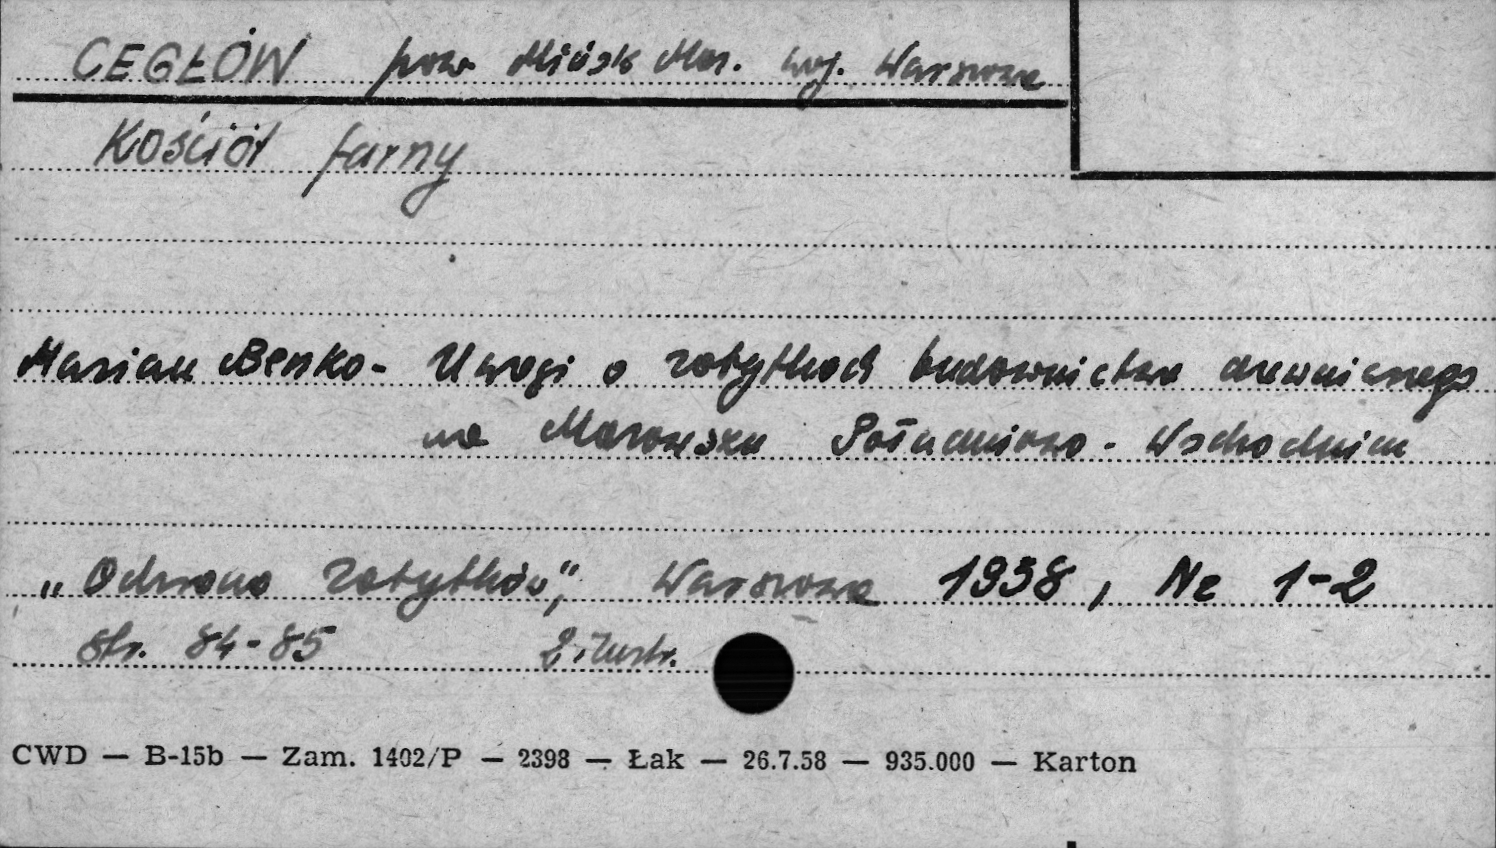 CEGŁÓW pow. Mińsk Maz. woj. Warszawa
Kościół farny
Marian Benko - Uwagi o zabytkach budownictwa drewnianego
na Mazowszu Południowo - Wschodnim
„Ochrona Zabytków”, Warszawa 1938, Nr 1-2
Str. 84-85 2 ilustr.
CWD — B-15b — Zam. 1402/P — 2398 — Łak — 26.7.58 — 935.000 — Karton